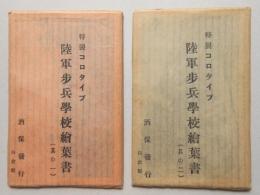 特製コロタイプ
陸軍歩兵學校繪葉書
(其の一)
酒保發行
特製コロタイプ
陸軍歩兵學校繪葉書
(其の二)
酒保發行